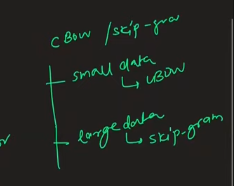 CBOW / skip-gra
small data
↳ CBOW
large data
↳ skip-gram
or